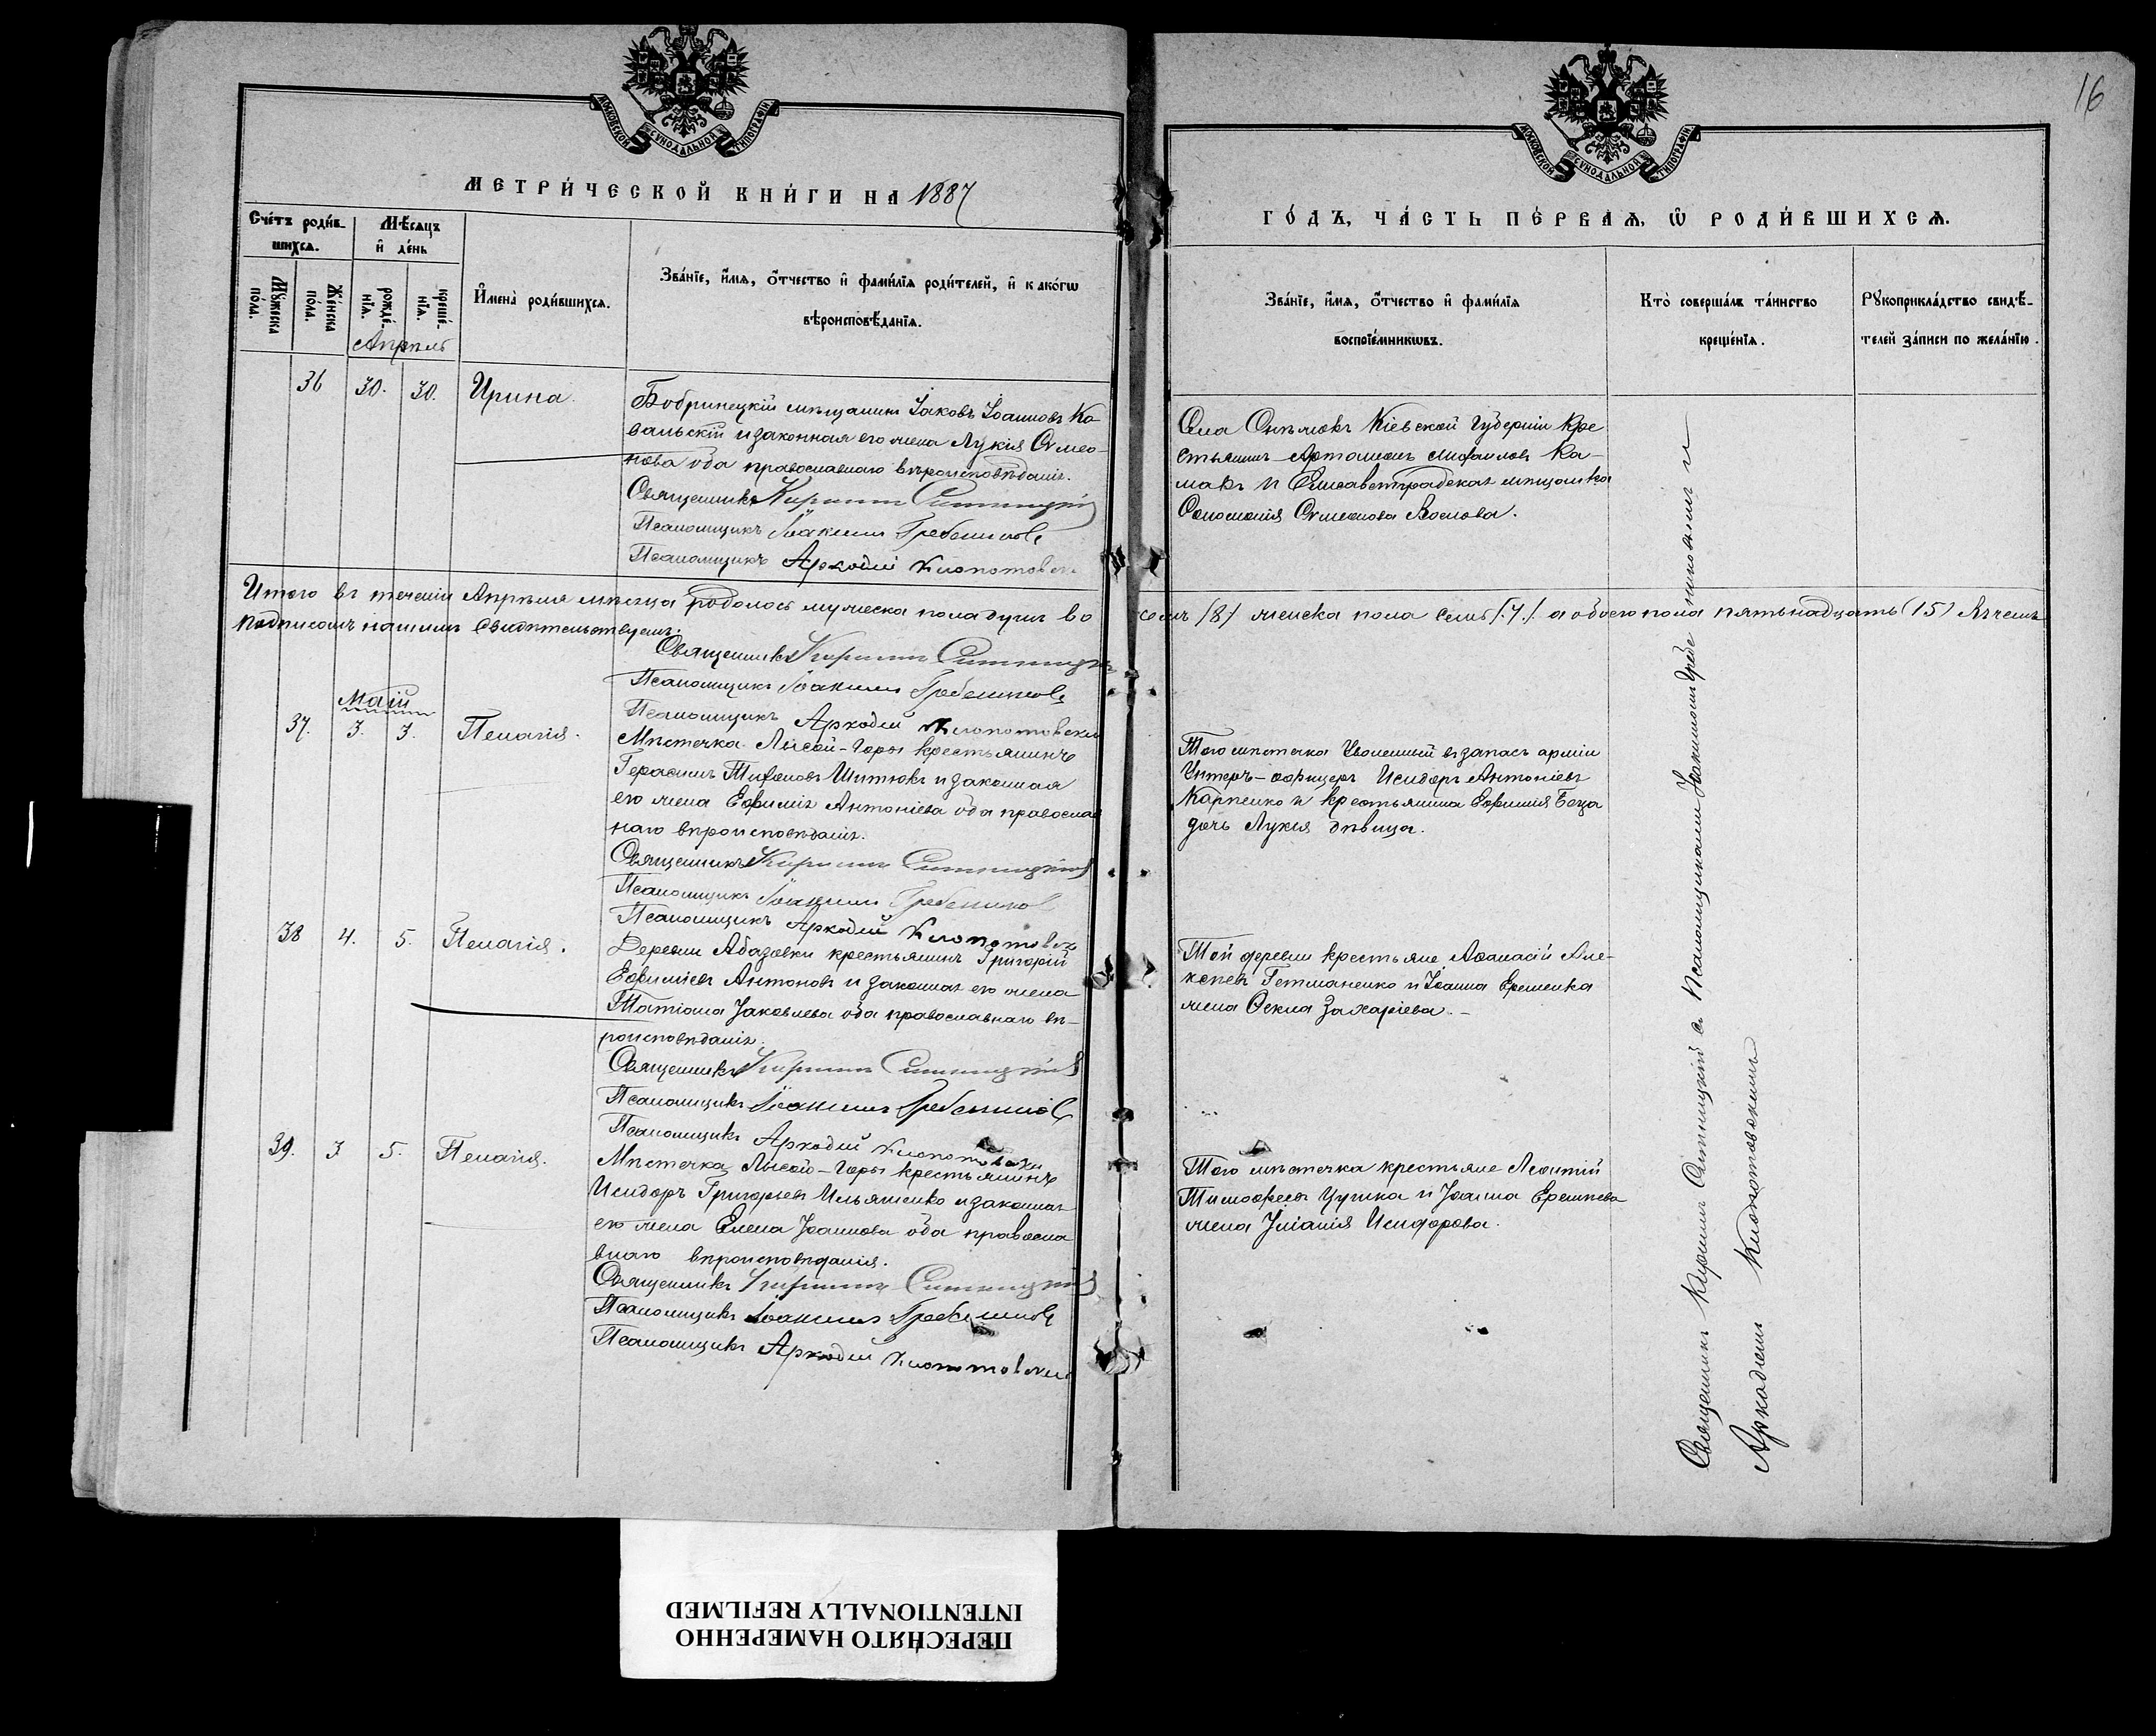 16
МОСКОВСКОЙ СУНОДАЛЬНОЙ ТИПОГРАФІИ
МОСКОВСКОЙ СУНОДАЛЬНОЙ ТИПОГРАФІИ
МЕТРИ́ЧЕСКОЙ КНИ́ГИ НА 1887
ГО́ДЪ, ЧА́СТЬ ПЕ́РВАѦ, Ѽ РОДИ́ВШИХСѦ.
Сче́тъ роди́в-
шихсѧ.
Мѣ́сѧцъ
и҆ де́нь
Мꙋ́жеска
по́ла.
Же́нска
по́ла.
рожде́-
нїѧ.
креще́-
нїѧ.
И҆мена̀ роди́вшихсѧ.
Зва́нїе, и҆́мѧ, ѻ҆́тчество и҆ фами́лїѧ роди́телей, и҆ како́гѡ
вѣроисповѣ́данїѧ.
Зва́нїе, и҆́мѧ, ѻ҆́тчество и҆ фами́лїѧ
воспрїе́мникѡвъ.
Кто̀ соверша́лъ та́инство
креще́нїѧ.
Рꙋкоприкла́дство свидѣ́-
телей за́писи по жела́нїю.
Апрѣль
36 30. 30. Ирина.
Бобринецкій мѣщанинъ Іаковъ Іоанновъ Ко
вальскій и законная его жена Лукія Симео-
нова оба православнаго вѣроисповѣданія.
Священникъ Кириллъ Ситницкій
Псаломщикъ Іоакимъ Гребенниковъ
Псаломщикъ Аркадій Клопотовск
Села Кіевской Губерніи Кре
стьянинъ Артамонъ Михаиловъ Ка-
макъ и Елисаветградская мѣщанка
Соломонія Симеонова
Итого въ теченіи Апрѣля мѣсяца родилось мужеска пола душъ во семь /8/ женска пола семь /7/. а обоего пола пятьнадцать (15) въ чемъ
подписомъ нашимъ свидѣтельствуемъ:
Священникъ Кириллъ Ситницкій
Псаломщикъ Іоакимъ Гребенниковъ
Псаломщикъ Аркадій Клопотовскій
Маій
37. 3. 3. Пелагія.
Мѣстечка Лысой-Горы крестьянинъ
Герасимъ Тифоновъ Шитюкъ и законная
его жена Евфимія Антоніева оба православ
наго вѣроисповѣданія.
Священникъ Кириллъ Ситницкій
Псаломщикъ Іоакимъ Гребенников
Псаломщикъ Аркадій Клопотовск
Того мѣстечка Уволенный въ запасъ арміи
Унтеръ-офицеръ Исидоръ Антоніевъ
Карпенко и крестьянина Евфимія Беца
дочь Лукія дѣвица.
38 4. 5. Пелагія.
Деревни Абазовки крестьянинъ Григорій
Евфиміевъ Антоновъ и законная его жена
Татіана Іаковлева оба православнаго вѣ-
роисповѣданія.
Священникъ Кириллъ Ситницкій
Псаломщикъ Іоакимъ Гребенниковъ
Псаломщикъ Аркадій Клопотовскій
Той деревни крестьяне Аѳанасій Але-
ксѣевъ Гетманенко и Іоанна Еременка
жена Ѳекла Захаріева.-
39. 3. 5. Пелагія.
Мѣстечка Лысой-Горы крестьянинъ
Исидоръ Григорьевъ Ильяшенко и законная
его жена Елена Іоаннова оба правосла
внаго вѣроисповѣданія.
Священникъ Кириллъ Ситницкій
Псаломщикъ Іоакимъ Гребенниковъ
Псаломщикъ Аркадій Клопотовскій
Того мѣстечка крестьяне Леонтій
Тимофеевъ Цушка и Іоанна
жена Іуліанія Исидорова.
Священникъ Кириллъ Ситницкій съ Псаломщиками Іоакимомъ Гребенниковымъ и
Аркадіемъ Клопотовскимъ
ПЕРЕСНЯТО НАМЕРЕННО
INTENTIONALLY REFILMED